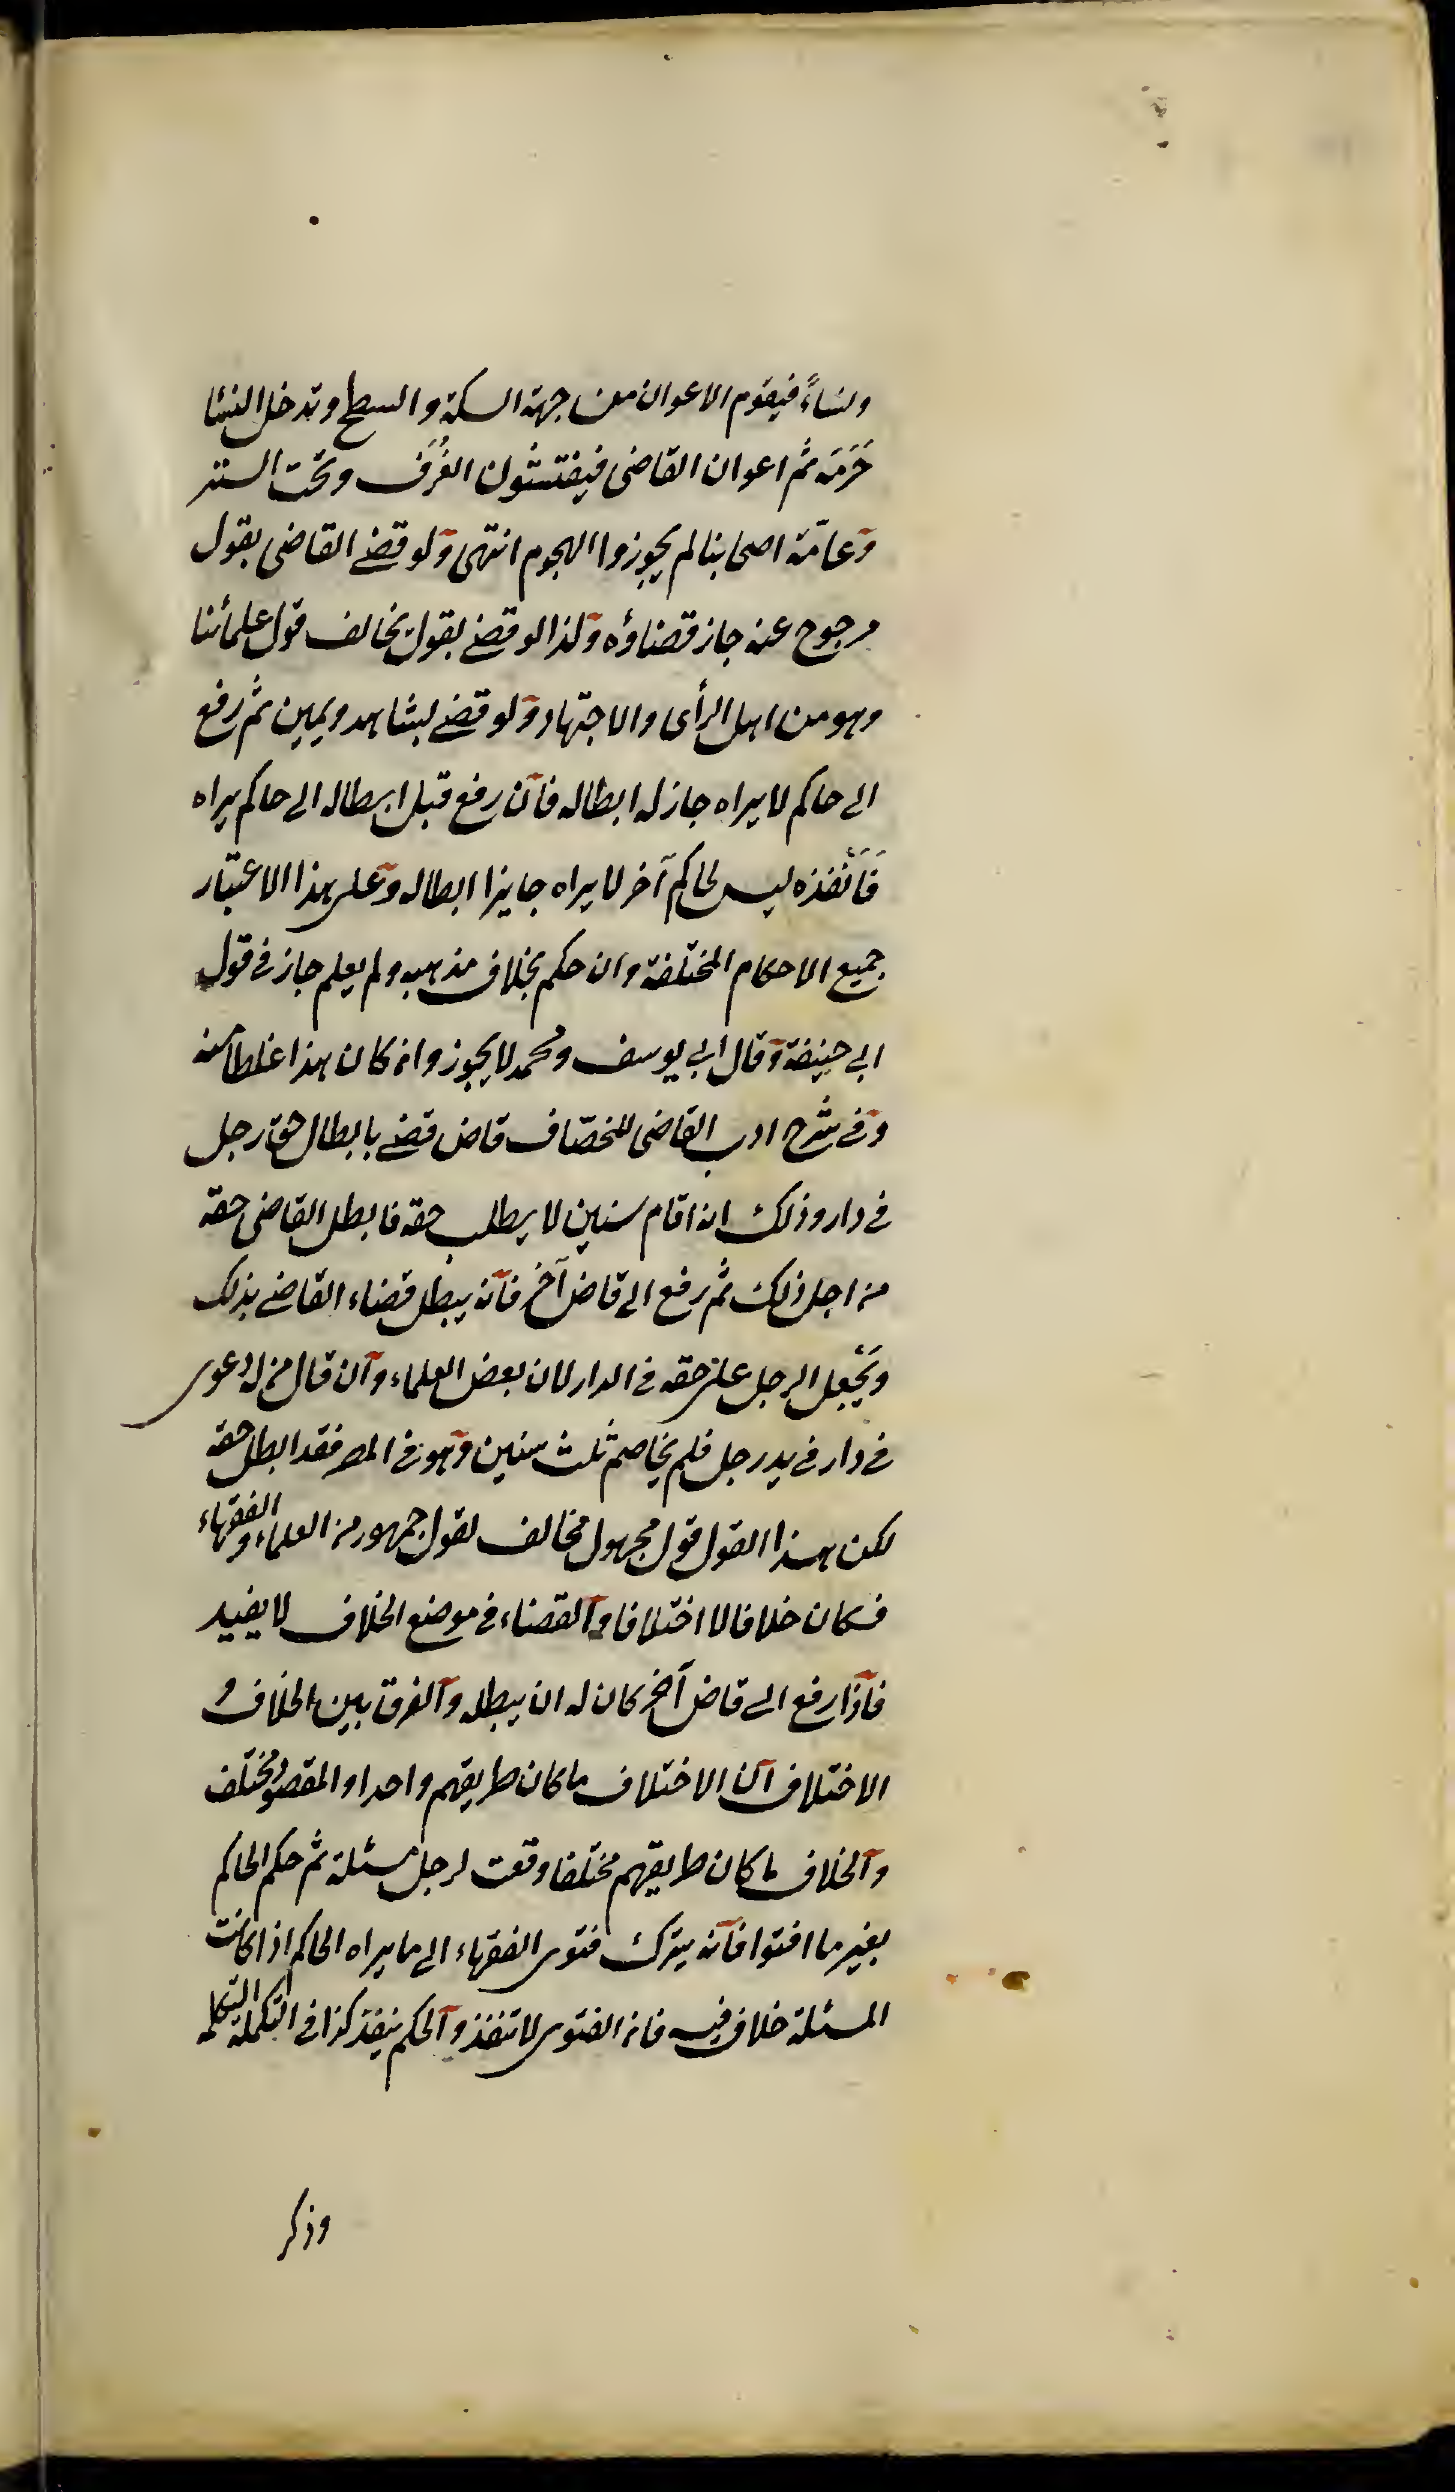 ونساءً فيقوم الاعوان من جهة السكة والسطح وتدخل النسا
حَرَمَه ثم اعوان القاضى فيفتشون الغُرَف وتحت الستر
وعامّة اصحابنا لم يجوزوا الهجوم انتهى ولو قضى القاضى بقول
مرجوح عنه جاز قضاؤه ولذا لو قضى بقول يخالف قول علمائنا
وهو من اهل الرأى والاجتهاد ولو قضى بشاهد ويمين ثم رفع
الى حاكم لا يراه جاز له ابطاله فان رفع قبل ابطاله الى حاكم يراه
فَاَنْفَذه ليس لحاكم آخر لا يراه جايزا ابطاله وعلى هذا الاعتبار
جميع الاحكام المختلفة وان حكم بخلاف مذهبه ولم يعلم جاز فى قول
ابى حنيفة وقال ابى يوسف ومحمد لا يجوز وان كان هذا غلطا منه
وفى شرح ادب القاضى للخصّاف قاض قضى بابطال حق رجل
فى دار وذلك انه اقام سنين لا يطلب حقه فابطل القاضى حقه
من اجل ذلك ثم رفع الى قاض آخر فانه يبطل قضاء القاضى بذلك
ويَجْعل الرجل على حقه فى الدار لان بعض العلماء وان قال من له دعوى
فى دار فى يد رجل فلم يخاصم ثلث سنين وهو فى المصر فقد ابطل حقه
لكن هذا القول قول مجهول مخالف لقول جمهور من العلماء والفقهاء
فكان خلافا لا اختلافا والقضاء فى موضع الخلاف لا يفيد
فاذا رفع الى قاض آخر كان له ان يبطله والفرق بين الخلاف و
الاختلاف ان الاختلاف ما كان طريقهم واحدا والمقصود مختلف
والخلاف ما كان طريقهم مختلفا وقعت لرجل مسئلة ثم حكم الحاكم
بغير ما افتوا فانه يترك فتوى الفقهاء الى ما يراه الحاكم اذا كانت
المسئلة خلاف فيه فان الفتوى لا تنفذ والحكم ينفذ كذا فى التكملة
وذكر